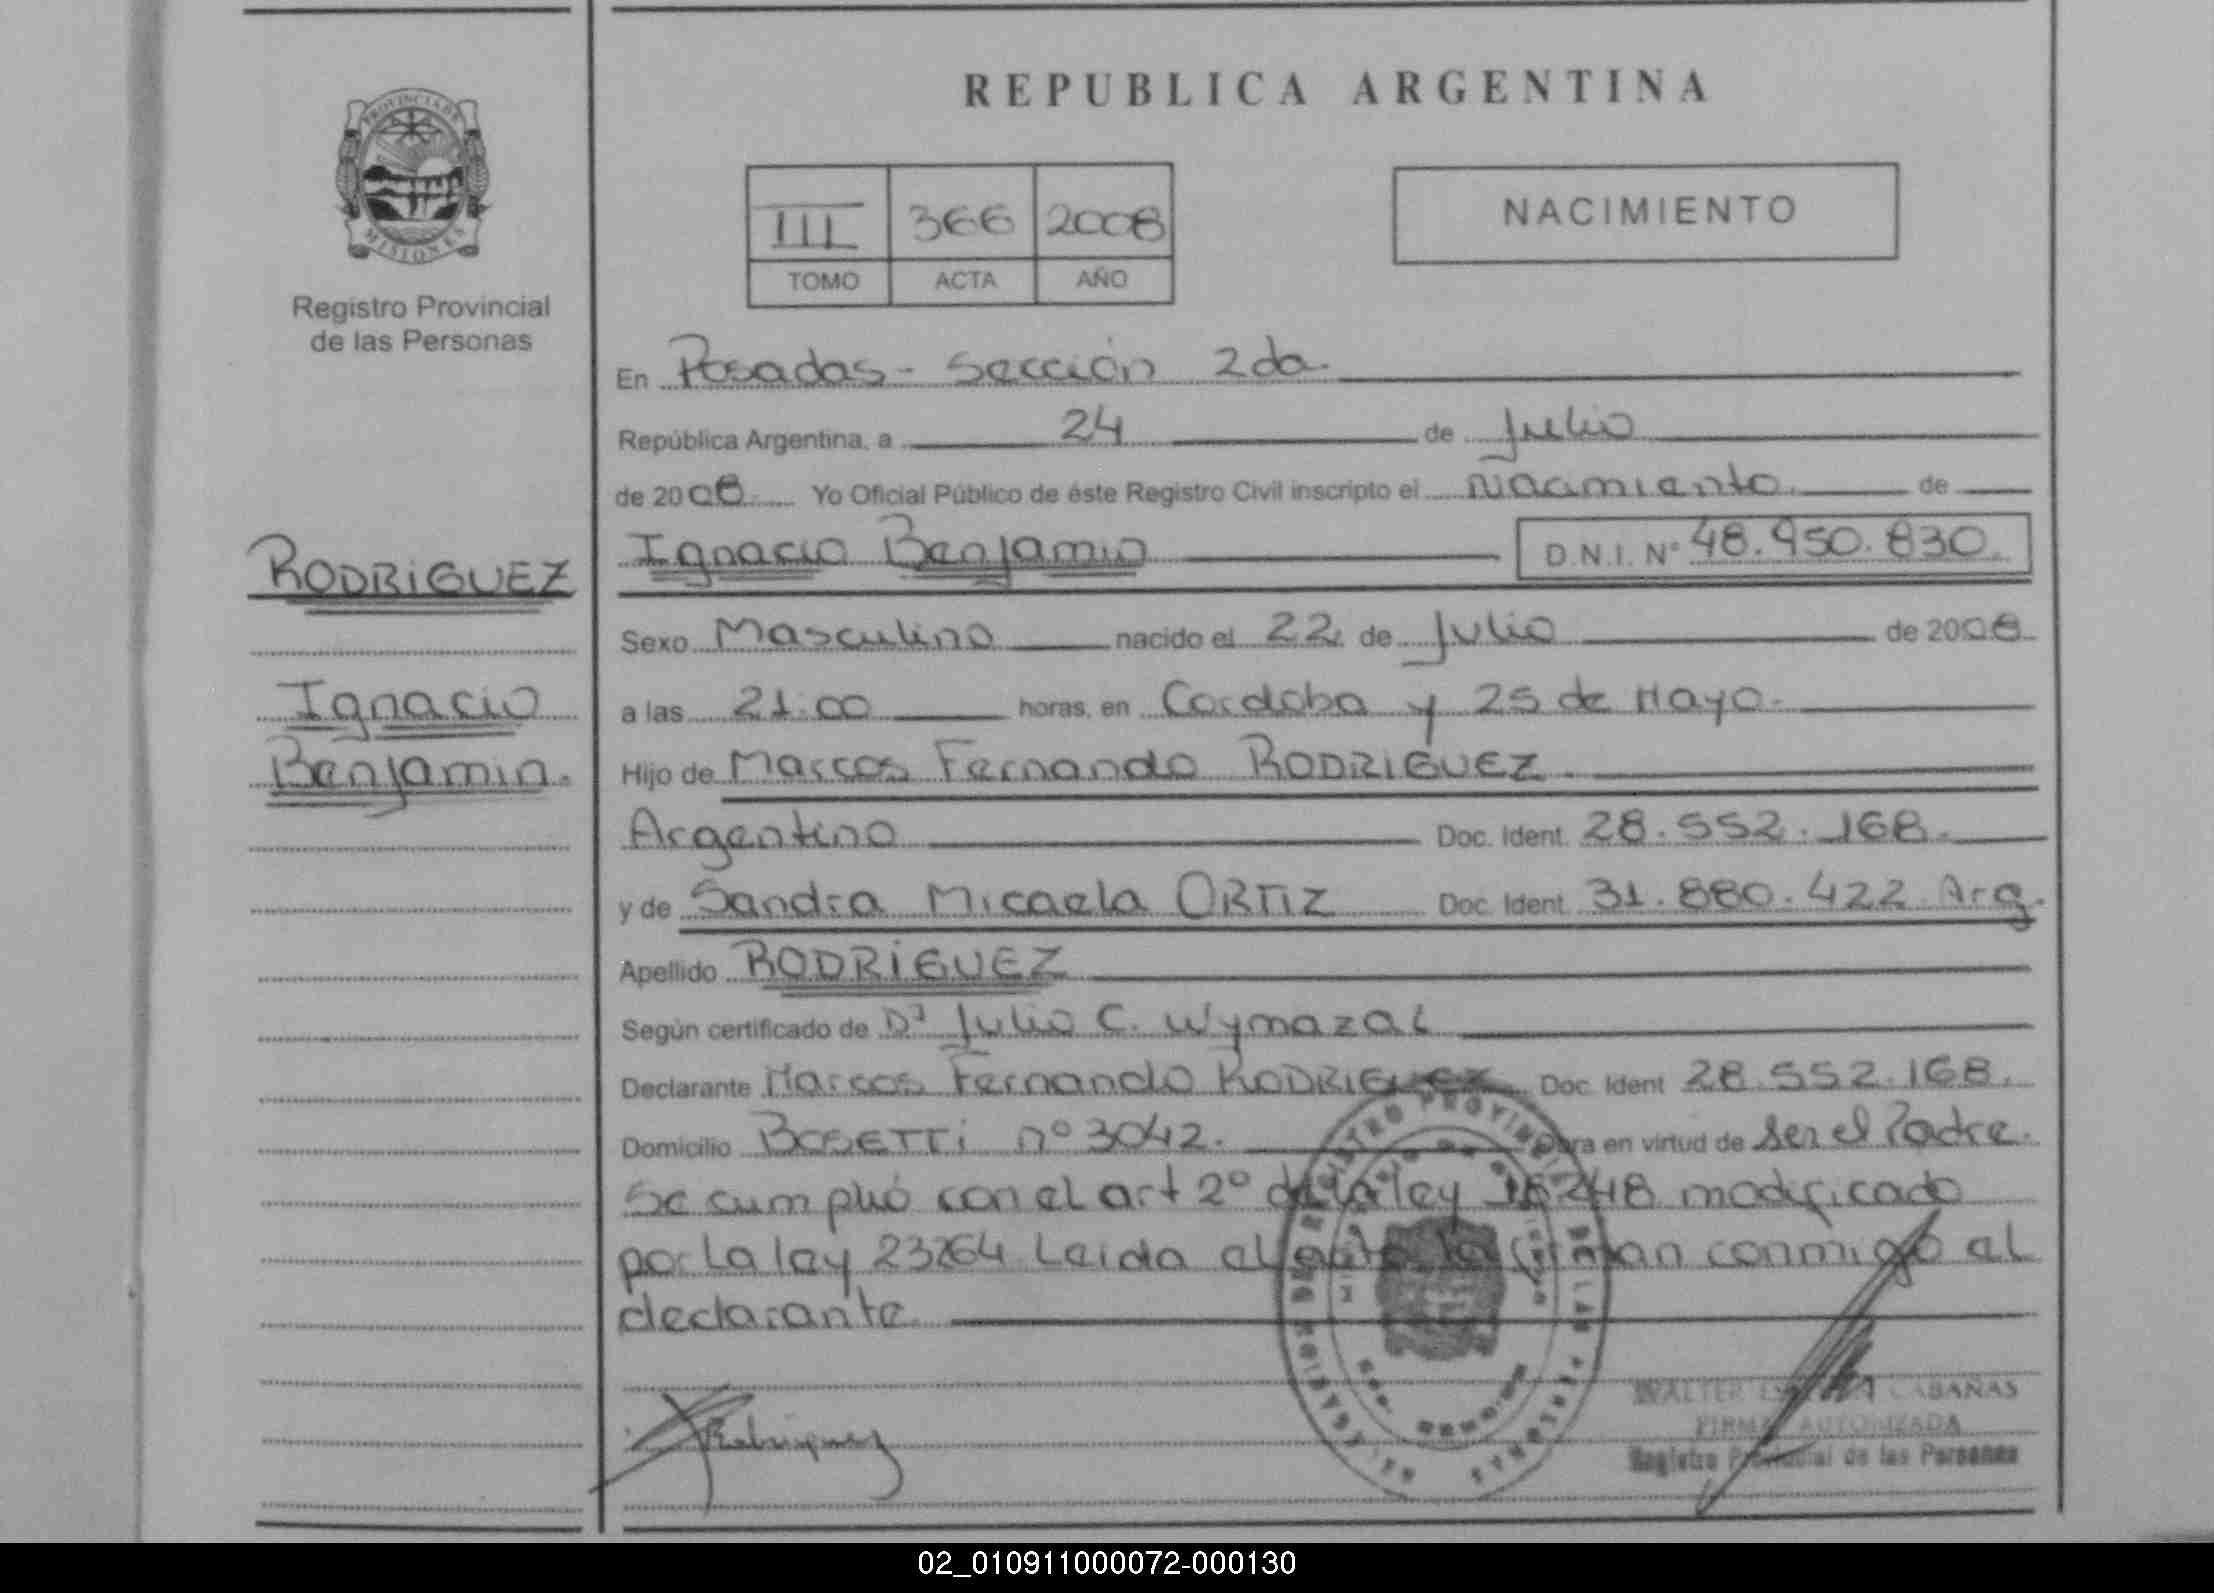 REPUBLICA ARGENTINA
PROVINCIA DE
MISIONES
Registro Provincial
de las Personas
III 366 2008
TOMO ACTA AÑO
NACIMIENTO
En Posadas - Sección 2da.
República Argentina, a 24 de Julio
de 2008 Yo Oficial Público de éste Registro Civil inscripto el Nacimiento de
Ignacio Benjamin D.N.I. Nº 48.950.830.
RODRIGUEZ
Ignacio
Benjamin.
Sexo Masculino nacido el 22 de Julio de 2008
a las 21.00 horas, en Cordoba y 25 de Mayo.
Hijo de Marcos Fernando RODRIGUEZ.
Argentino Doc. Ident. 28.552.168.
y de Sandra Micaela ORTIZ Doc. Ident. 31.880.422. Arg.
Apellido RODRIGUEZ
Según certificado de Dr Julio C. Wymazal
Declarante Marcos Fernando RODRIGUEZ Doc. Ident 28.552.168.
Domicilio BOSETTI nº 3042. Obra en virtud de ser el Padre.
Se cumplió con el art 2º de la ley 18248 modificado
por la ley 23264 Leida el acta la firman conmigo el
declarante.
Rodriguez
WALTER CABAÑAS
FIRMA AUTORIZADA
Registro Provincial de las Personas
02_010911000072-000130